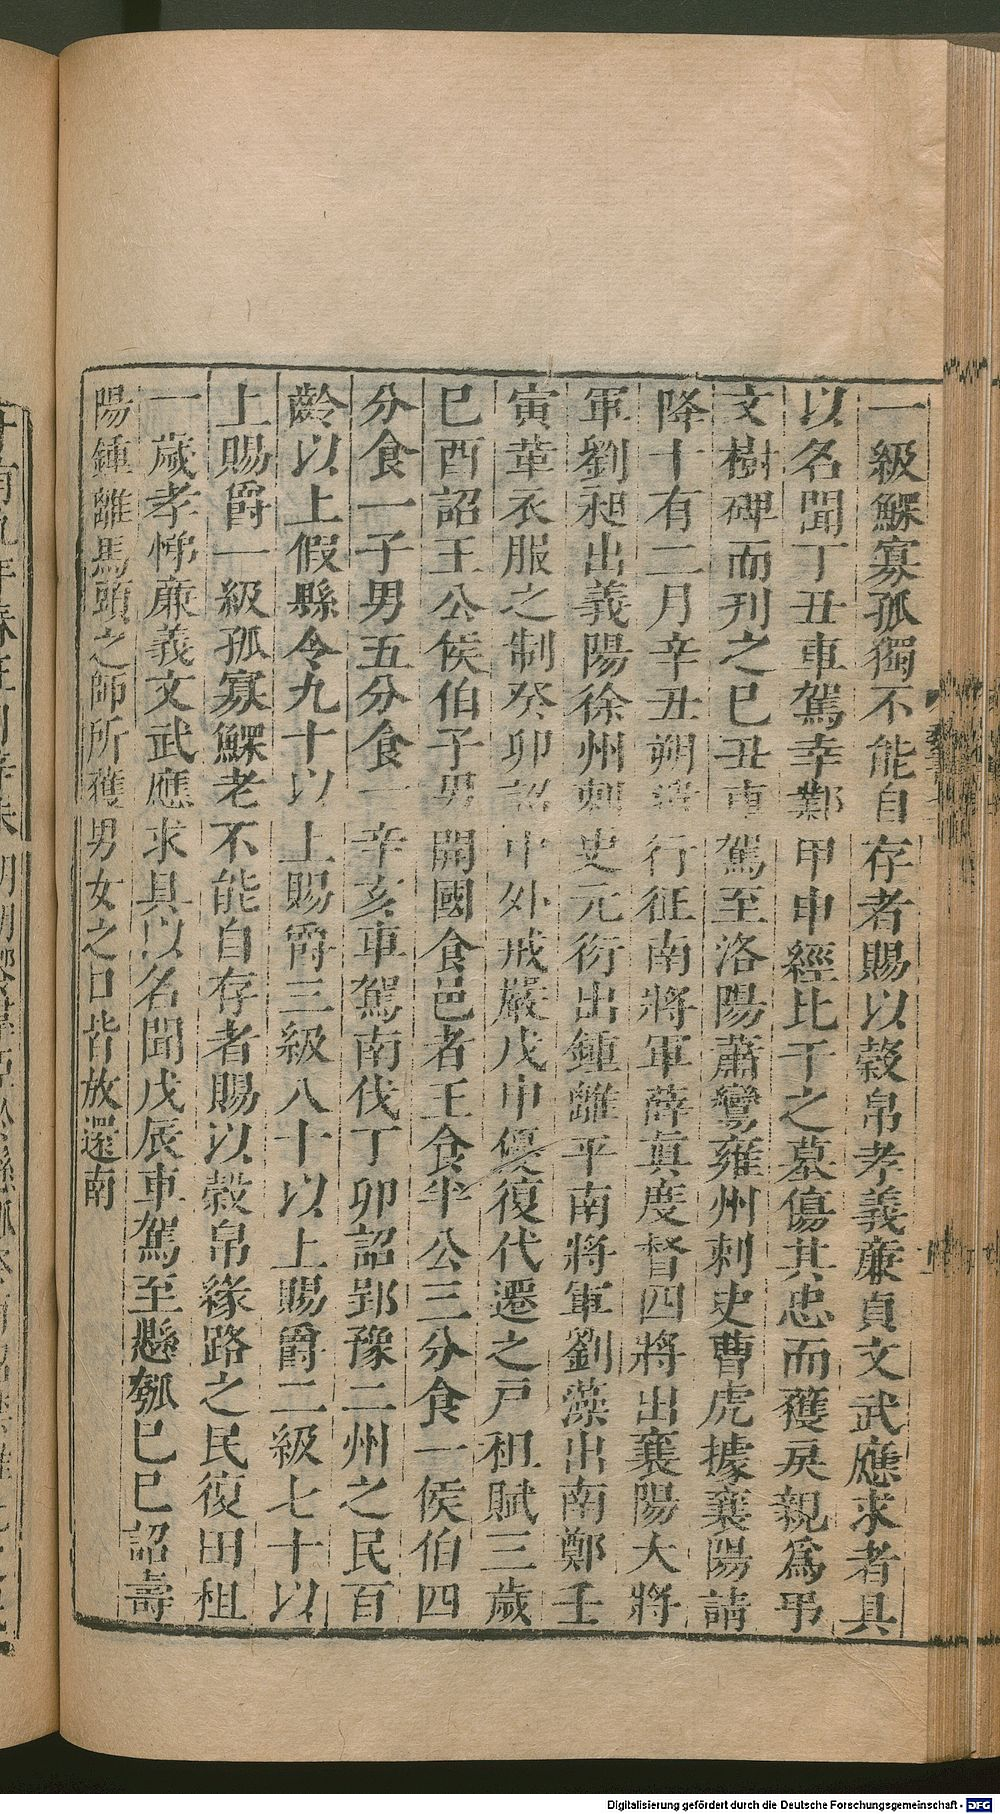 一級鰥寡孤獨不能自存者賜以穀帛孝義亷貞文武應求者具
以名聞丁丑車駕幸鄴甲申經比干之墓傷其忠而獲戾親爲弔
文樹碑而刋之巳丑車駕至洛陽蕭鸞雍州刺史曹虎據襄陽請
降十有二月辛丑朔遣行征南將軍薛真度督四將出襄陽大將
軍劉昶出義陽徐州刺史元衍出鍾離平南將軍劉藻出南鄭壬
寅革衣服之制癸卯詔中外戒嚴戊申優復代遷之戸租賦三歲
巳酉詔王公侯伯子男開國食邑者王食半公三分食一侯伯四
分食一子男五分食一辛亥車駕南伐丁卯詔郢豫二州之民百
齡以上假縣令九十以上賜爵三級八十以上賜爵二級七十以
上賜爵一級孤寡鰥老不能自存者賜以穀帛緣路之民復田租
一歲孝悌亷義文武應求具以名聞戊辰車駕至懸瓠巳巳詔壽
陽鍾離馬頭之師所獲男女之口皆放還南
Digitalisierung gefördert durch die Deutsche Forschungsgemeinschaft - DFG